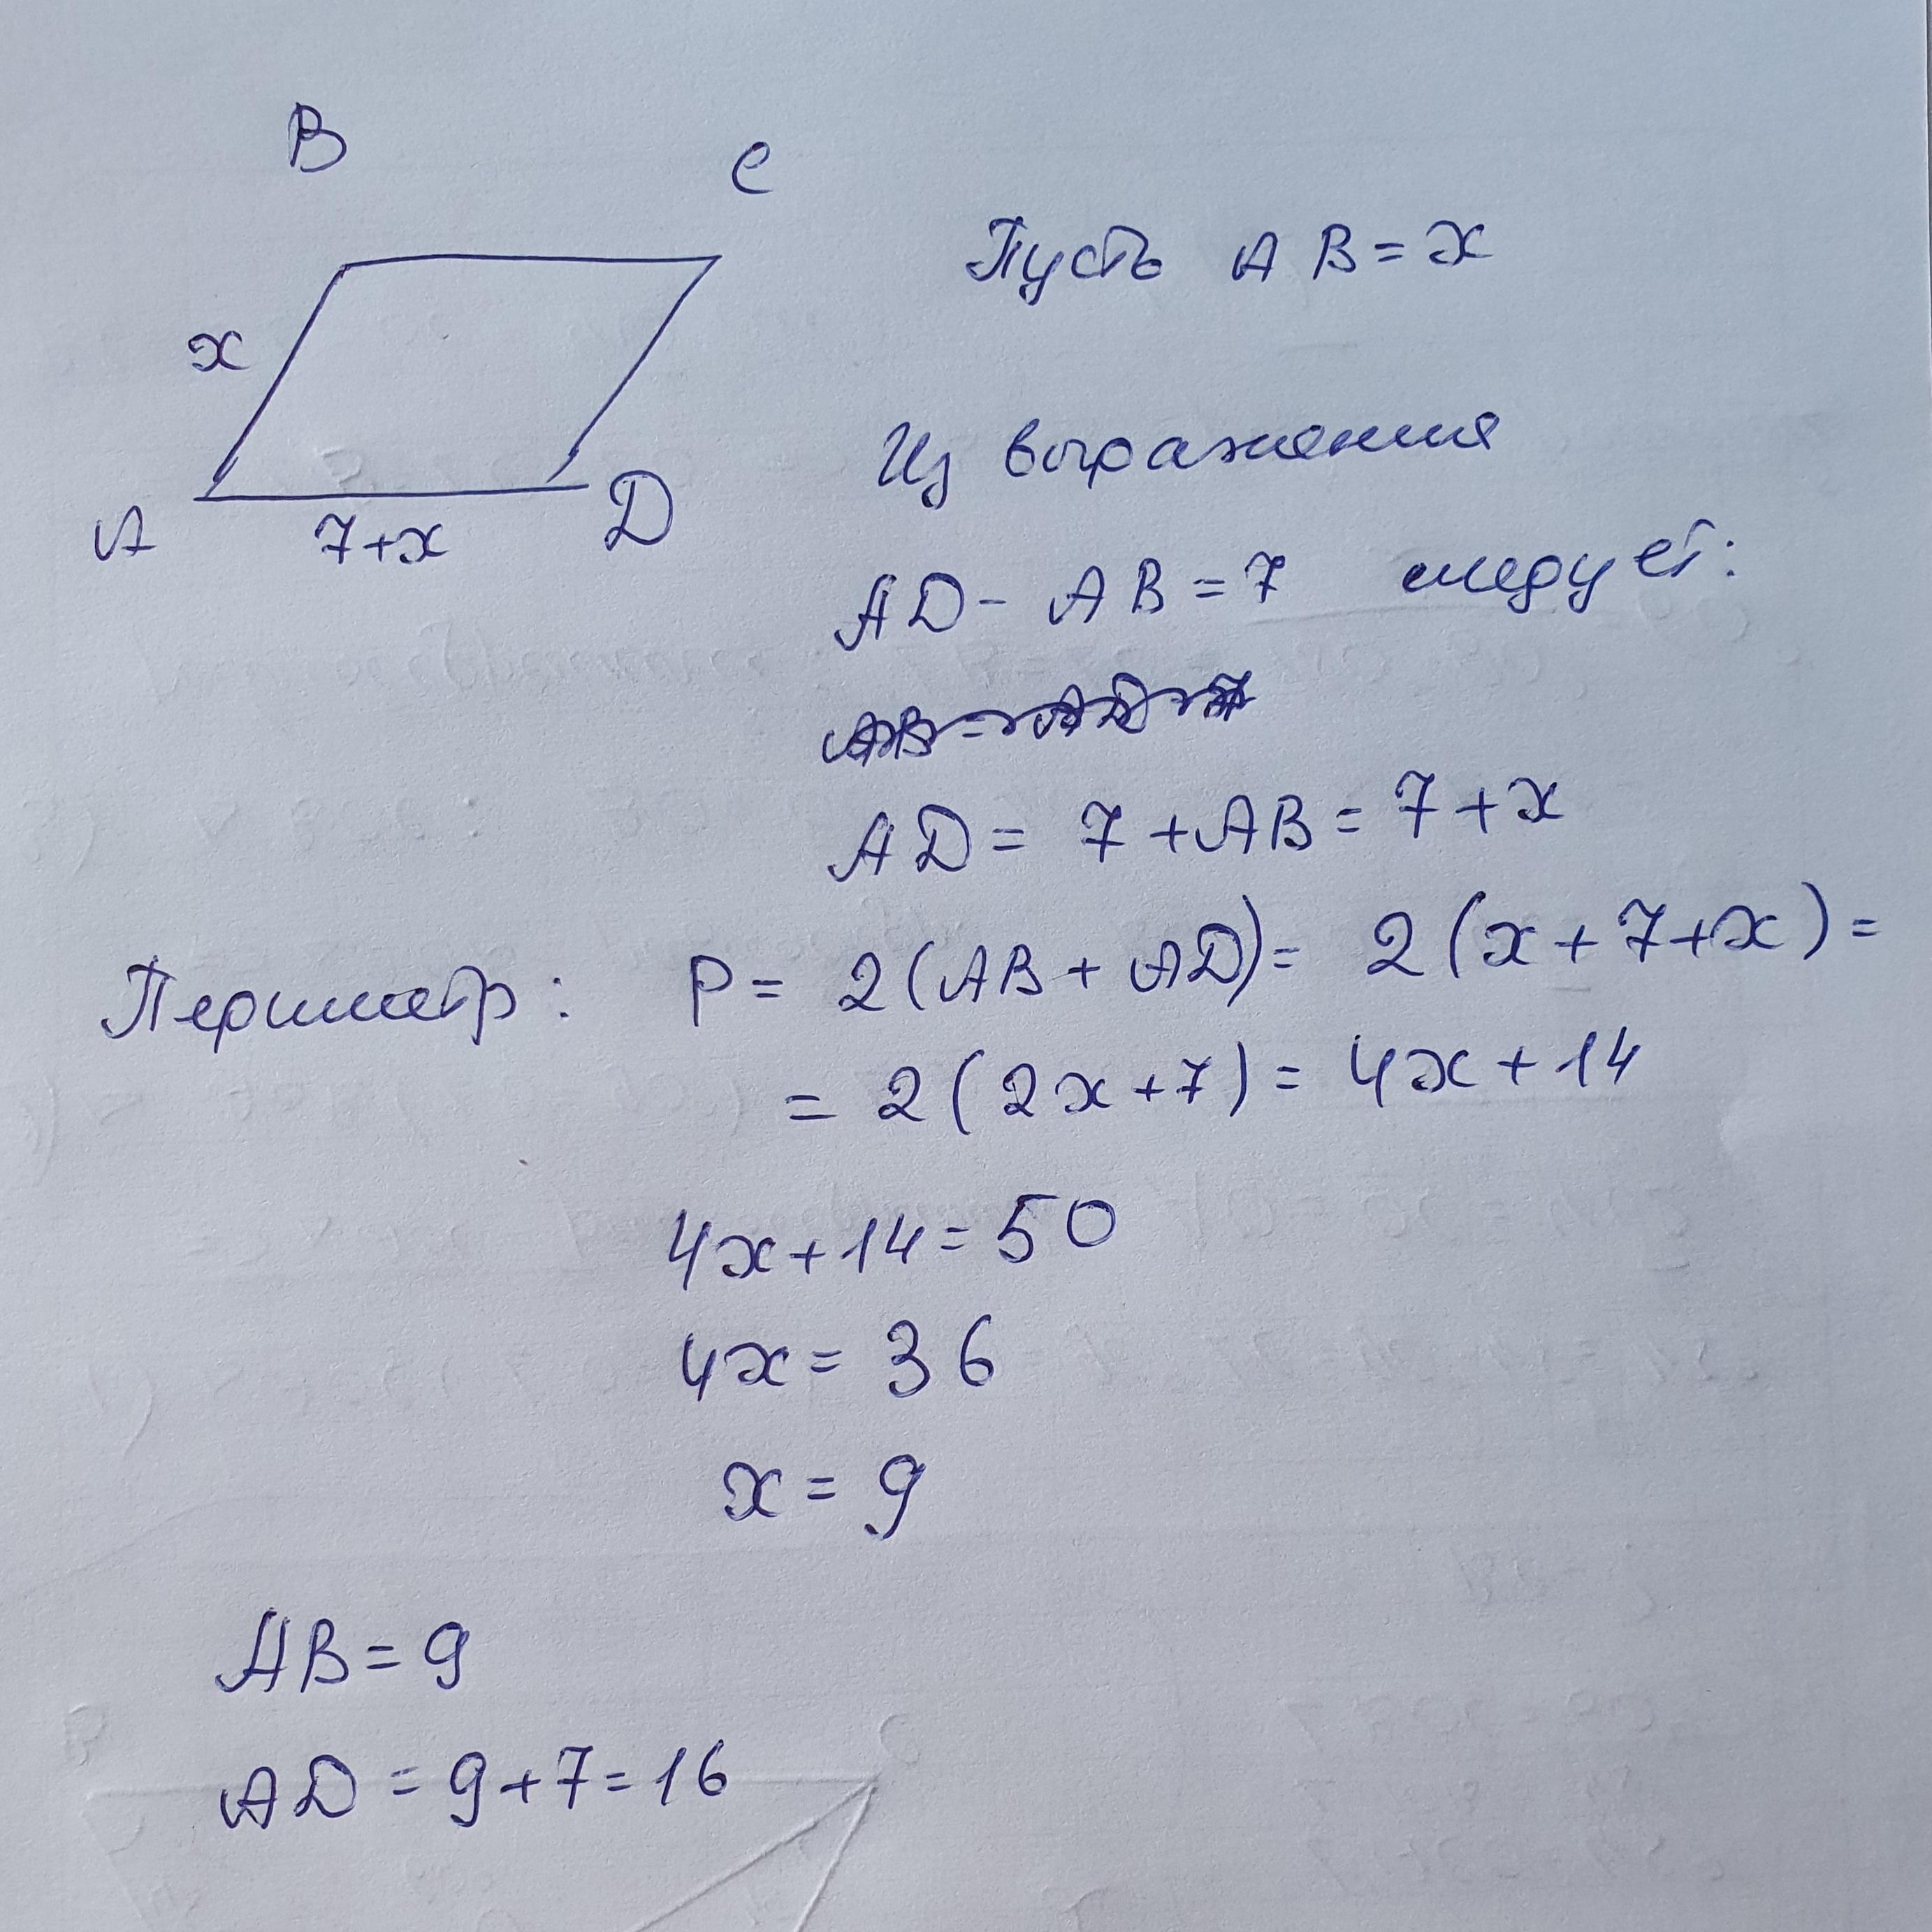 B
C
x
A
7+x
D
Пусть AB = x
Из выражения
AD - AB = 7 следует:
AD = 7 + AB = 7 + x
Периметр: P = 2(AB + AD) = 2(x + 7 + x) =
= 2(2x + 7) = 4x + 14
4x + 14 = 50
4x = 36
x = 9
AB = 9
AD = 9 + 7 = 16